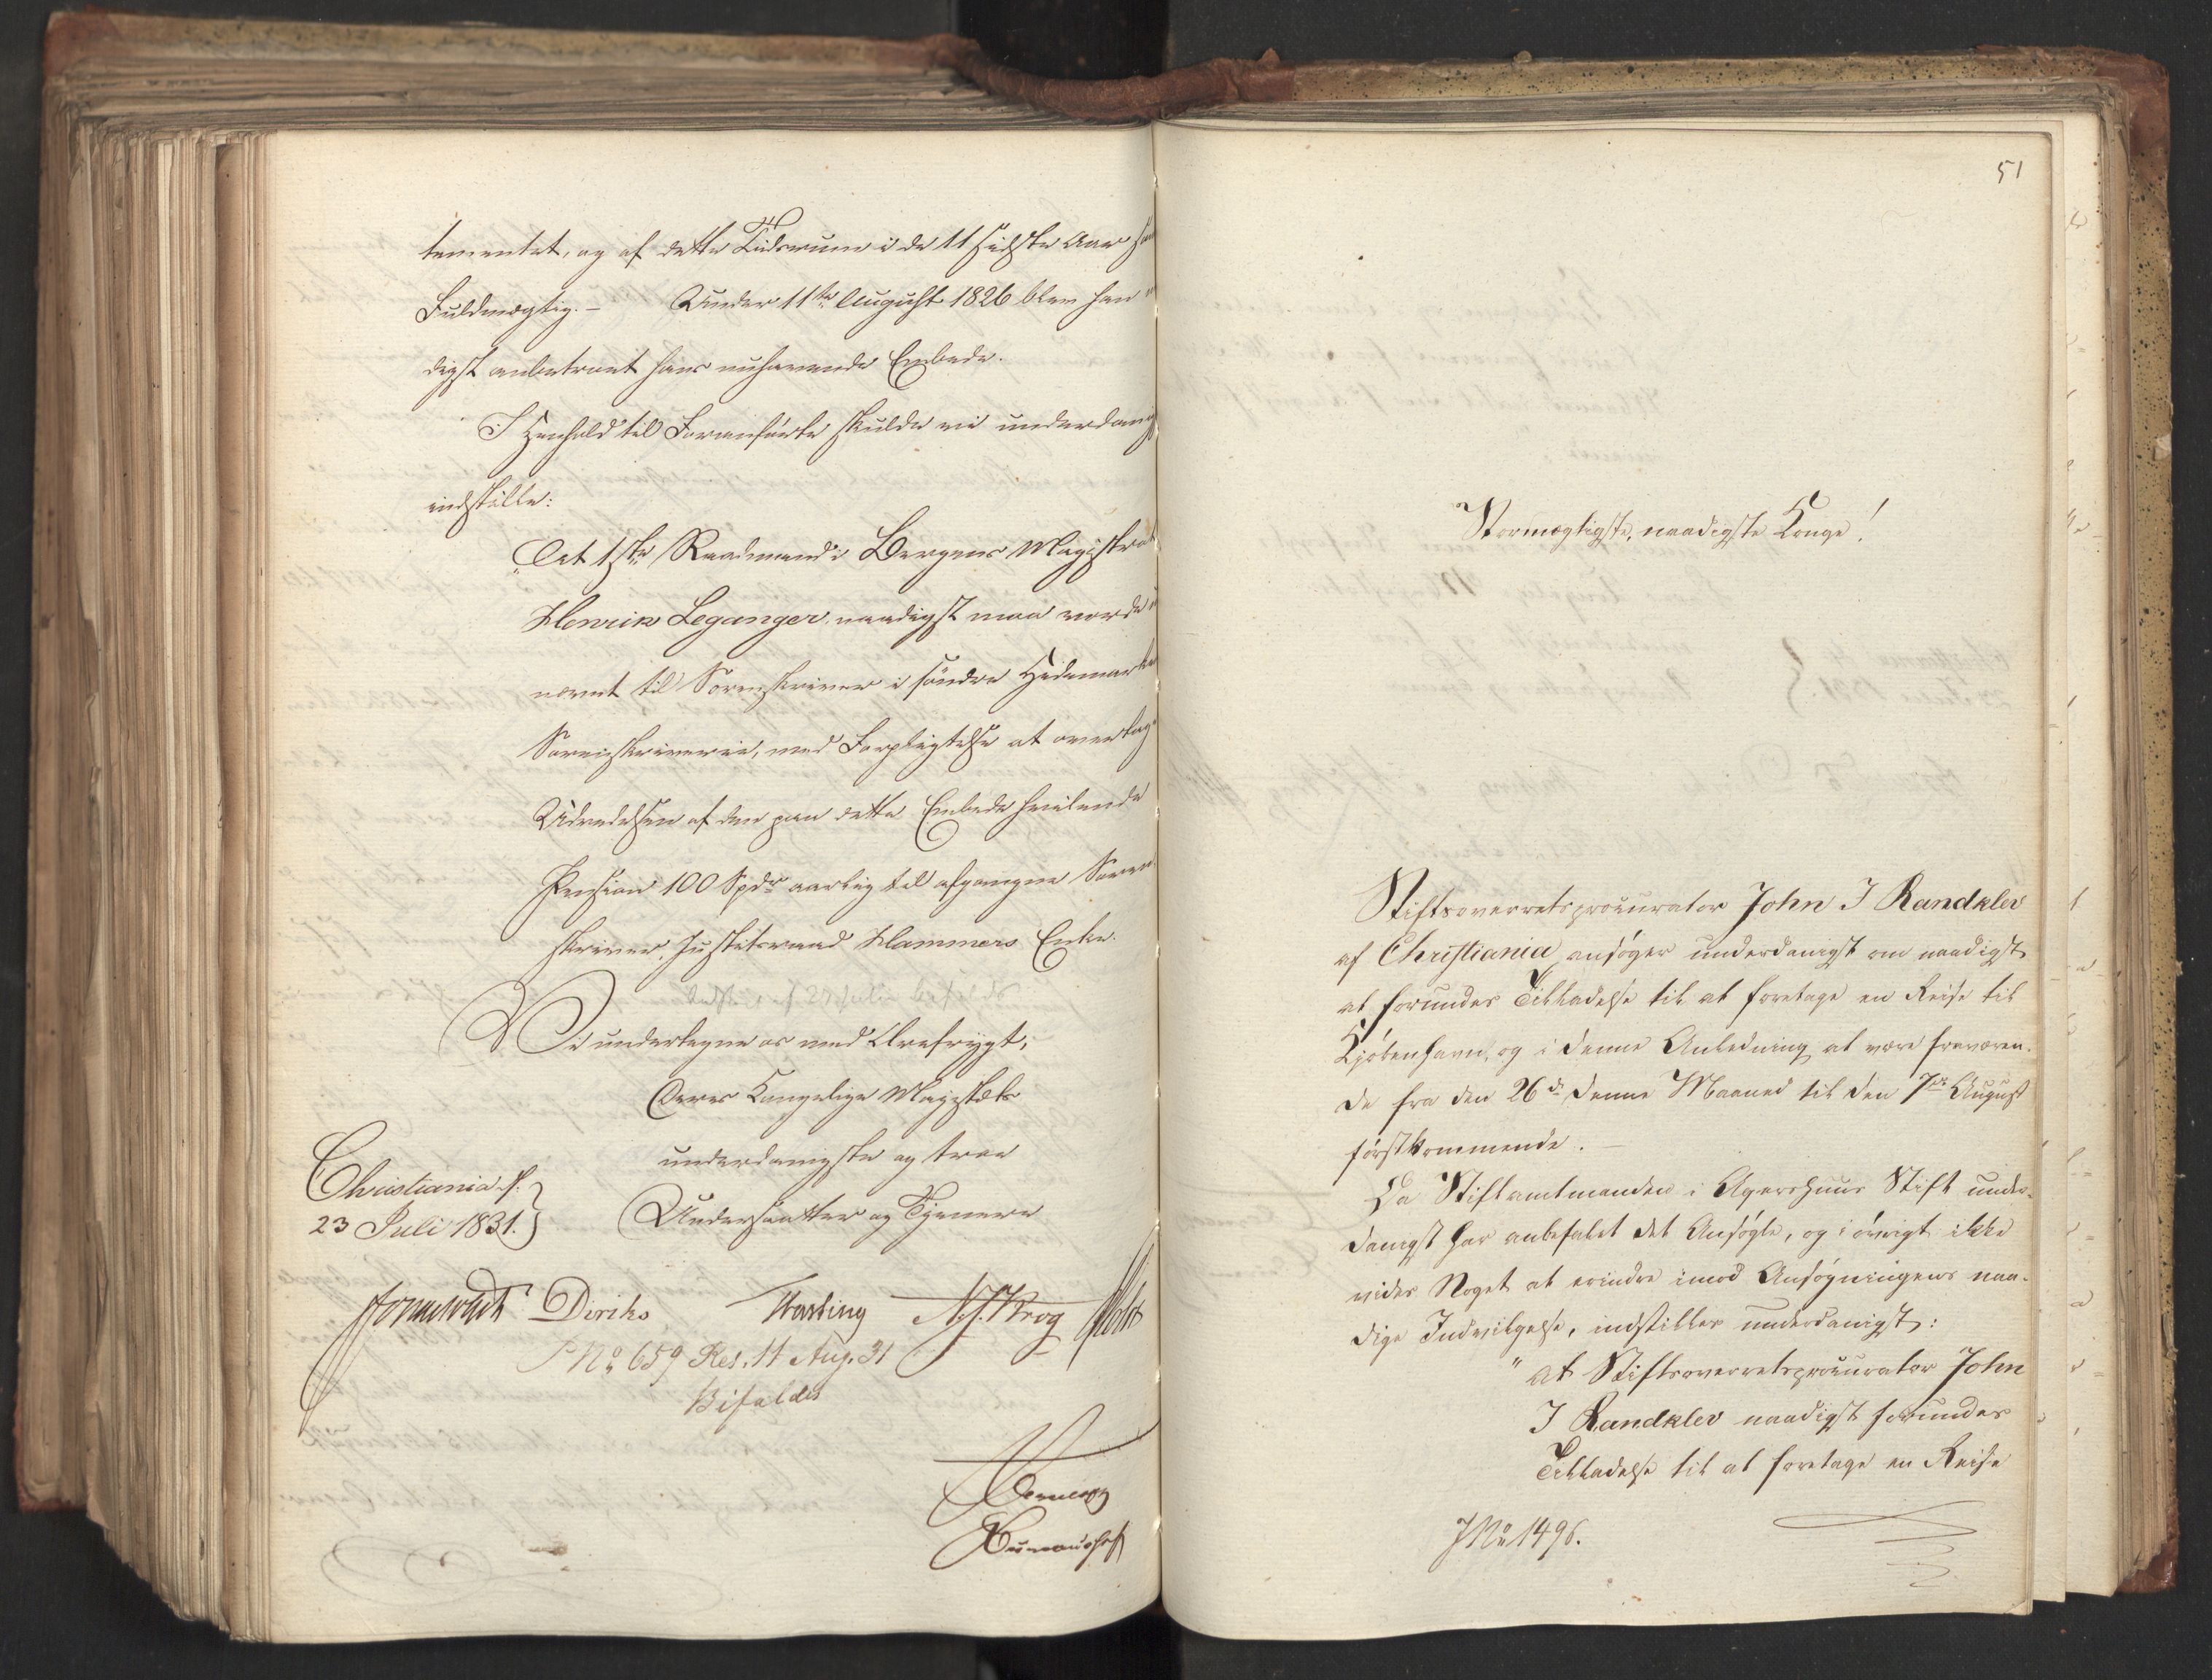 tementet, og af dette Tidsrum i de 11 sidste Aar som
Fuldmægtig. – Under 11te August 1826 blev han
digst anbetroet hans nuhavende Embede.
I Henhold til Foranførte skulde vi underdanigst
indstille:
„At 1ste Raadmand i Bergens Magistrat
Henrik Leganger naadigst maa vorde
nævnt til Sorenskriver i søndre Hedemarkens
Sorenskriverie, med Forpligtelse at overtage
Udredelsen af den paa dette Embede hvilende
Pension 100 Spdr aarlig til afgangne Soren
skriver, Justitsraad Hammers Enke.
Indst. af 23 Julii bifaldes
Vi undertegne os med Ærefrygt,
Deres Kongelige Majestæts
underdanigste og troe
Undersaatter og Tjenere
Christiania d.
23 Juli 1831.
Diriks Fasting N. J. Krog Holst
S No 659 Res. 11 Aug. 31
Bifaldes
51
Stormægtigste, naadigste Konge!
Stiftsoverretsprocurator John J Randklev
af Christiania ansøger underdanigst om naadigst
at forundes Tilladelse til at foretage en Reise til
Kjøbenhavn, og i denne Anledning at være fraværen-
de fra den 26de denne Maaned til den 7de August
førstkommende. –
Da Stiftamtmanden i Agershuus Stift under-
danigst har anbefalet det Ansøgte, og i øvrigt ikke
vides Noget at erindre imod Ansøgningens naa-
dige Indvilgelse, indstilles underdanigst:
"at Stiftsoverretsprocurator John
J Randklev naadigst forundes
Tilladelse til at foretage en Reise
JNo 1496.